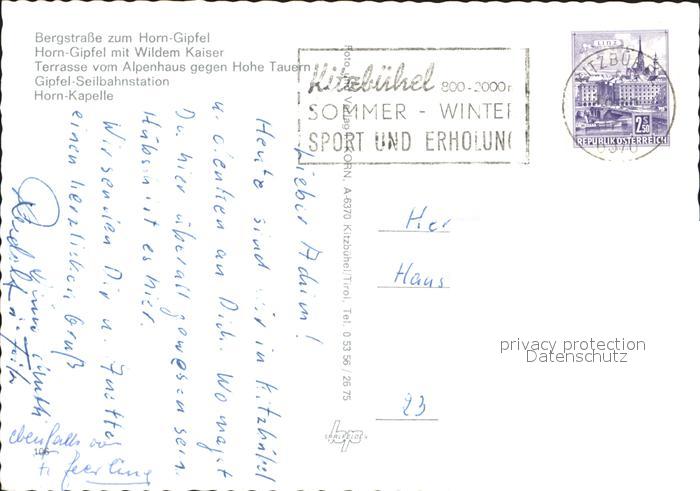 Bergstraße zum Horn-Gipfel
Horn-Gipfel mit Wildem Kaiser
Terrasse vom Alpenhaus gegen Hohe Tauern
Gipfel-Seilbahnstation
Horn-Kapelle
Kitzbühel 800-2000m
SOMMER - WINTER
SPORT UND ERHOLUNG
LINZ
KITZBÜHEL
6370
2.50
REPUBLIK ÖSTERREICH
Lieber Achim!
Heute sind wir in Kitzbühel
u. denken an Dich. Wo magst
Du hier überall gewesen sein.
Hübsch ist es hier.
Wir senden Dir u.
einen herzlichen Gruß
Rudolf u.
ebenfalls von
106
A-6370 Kitzbühel/Tirol, Tel. 0 53 56 / 26 75
Herr
Haus
23
privacy protection
Datenschutz
hp
SAALFELDEN